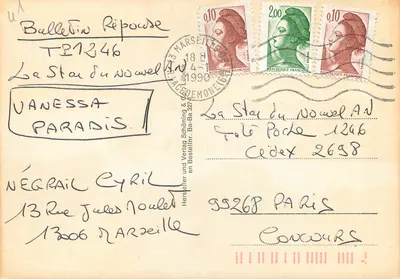 Bulletin Réponse
TP1246
La Star du Nouvel AN
VANESSA
PARADIS.
NÉGRAIL CYRIL
13 Rue Jules Moulet
13006 MARSEILLE
Hersteller und Verlag Schöning &
en Bestellnr. Ba-Ba
0,10
2,00
0,10
REPUBLIQUE FRANÇAISE
MARSEILLE
18 H
4-1
1990
La Star du Nouvel AN
Télé Poche 1246
Cédex 2698
99268 PARIS
CONCOURS